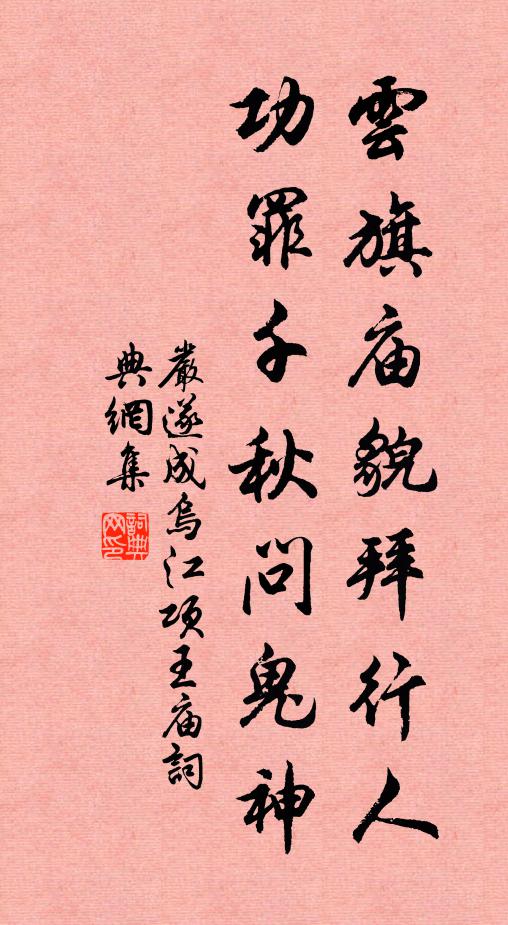 雲旗庙貌拜行人
功罪千秋問鬼神
嚴遂成烏江项王庙詞
典網集
詞典网印